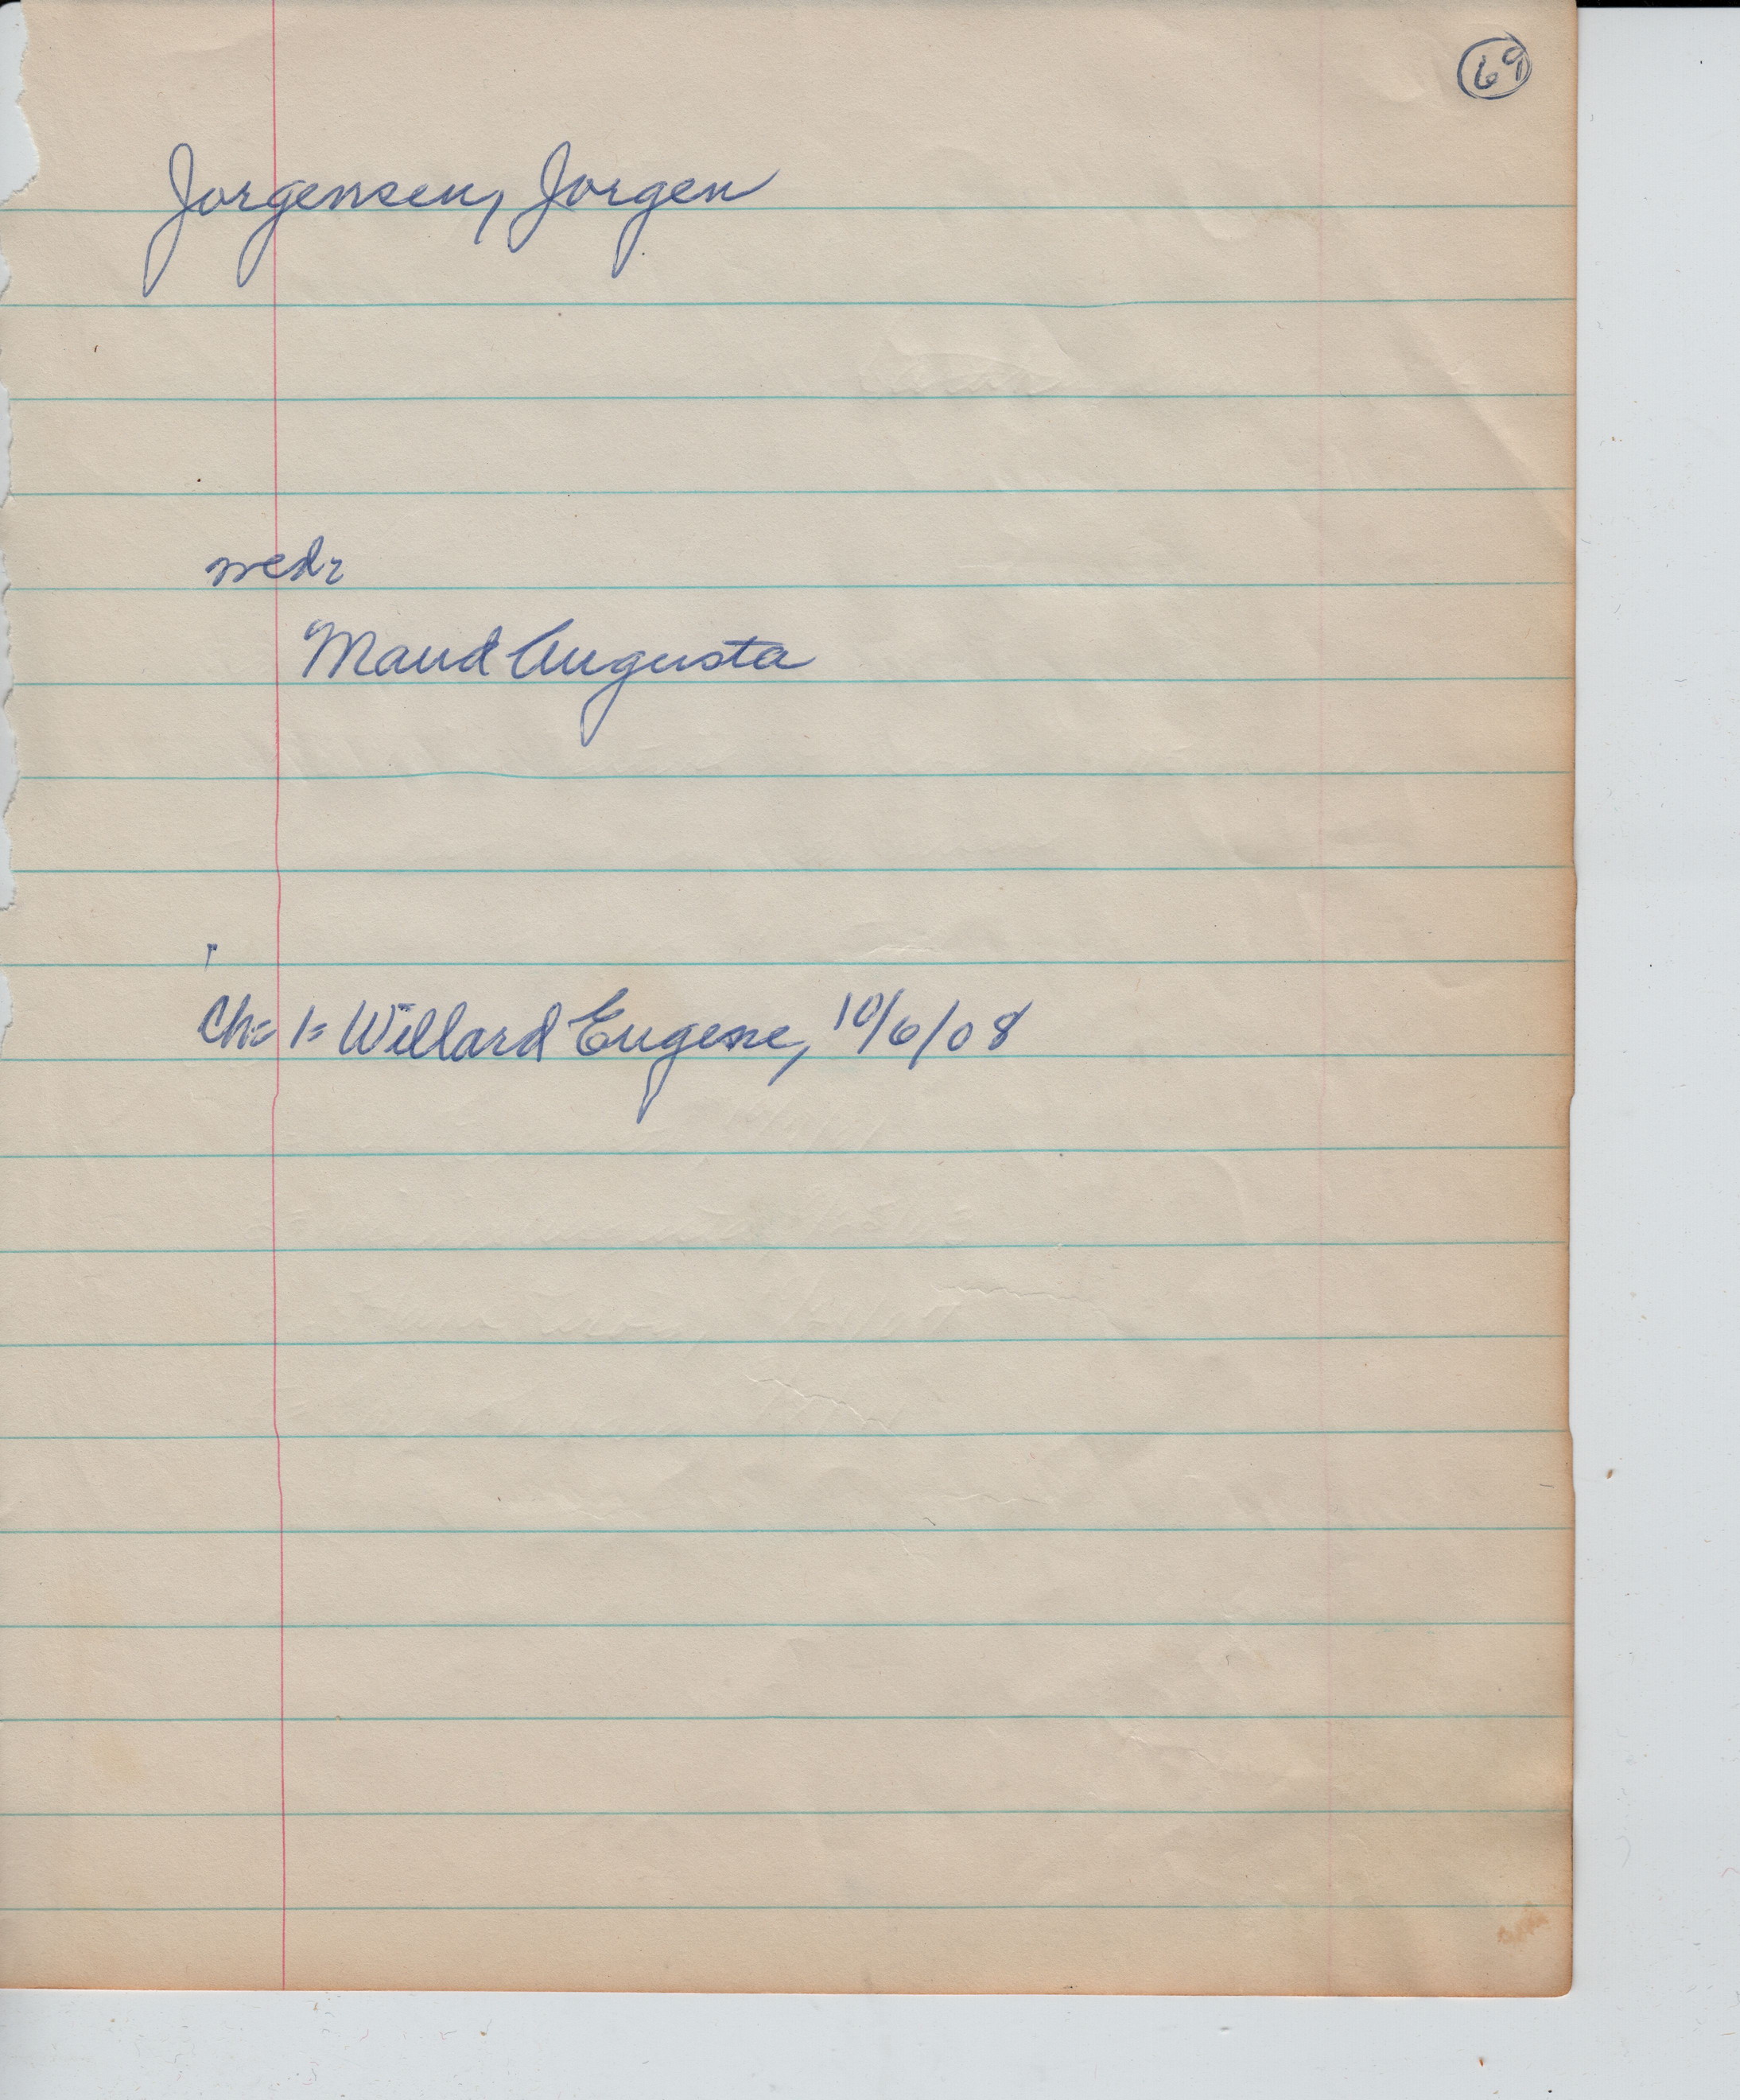 69
Jorgensen, Jorgen
wed:
Maud Augusta
Ch= 1= Willard Eugene, 10/6/08